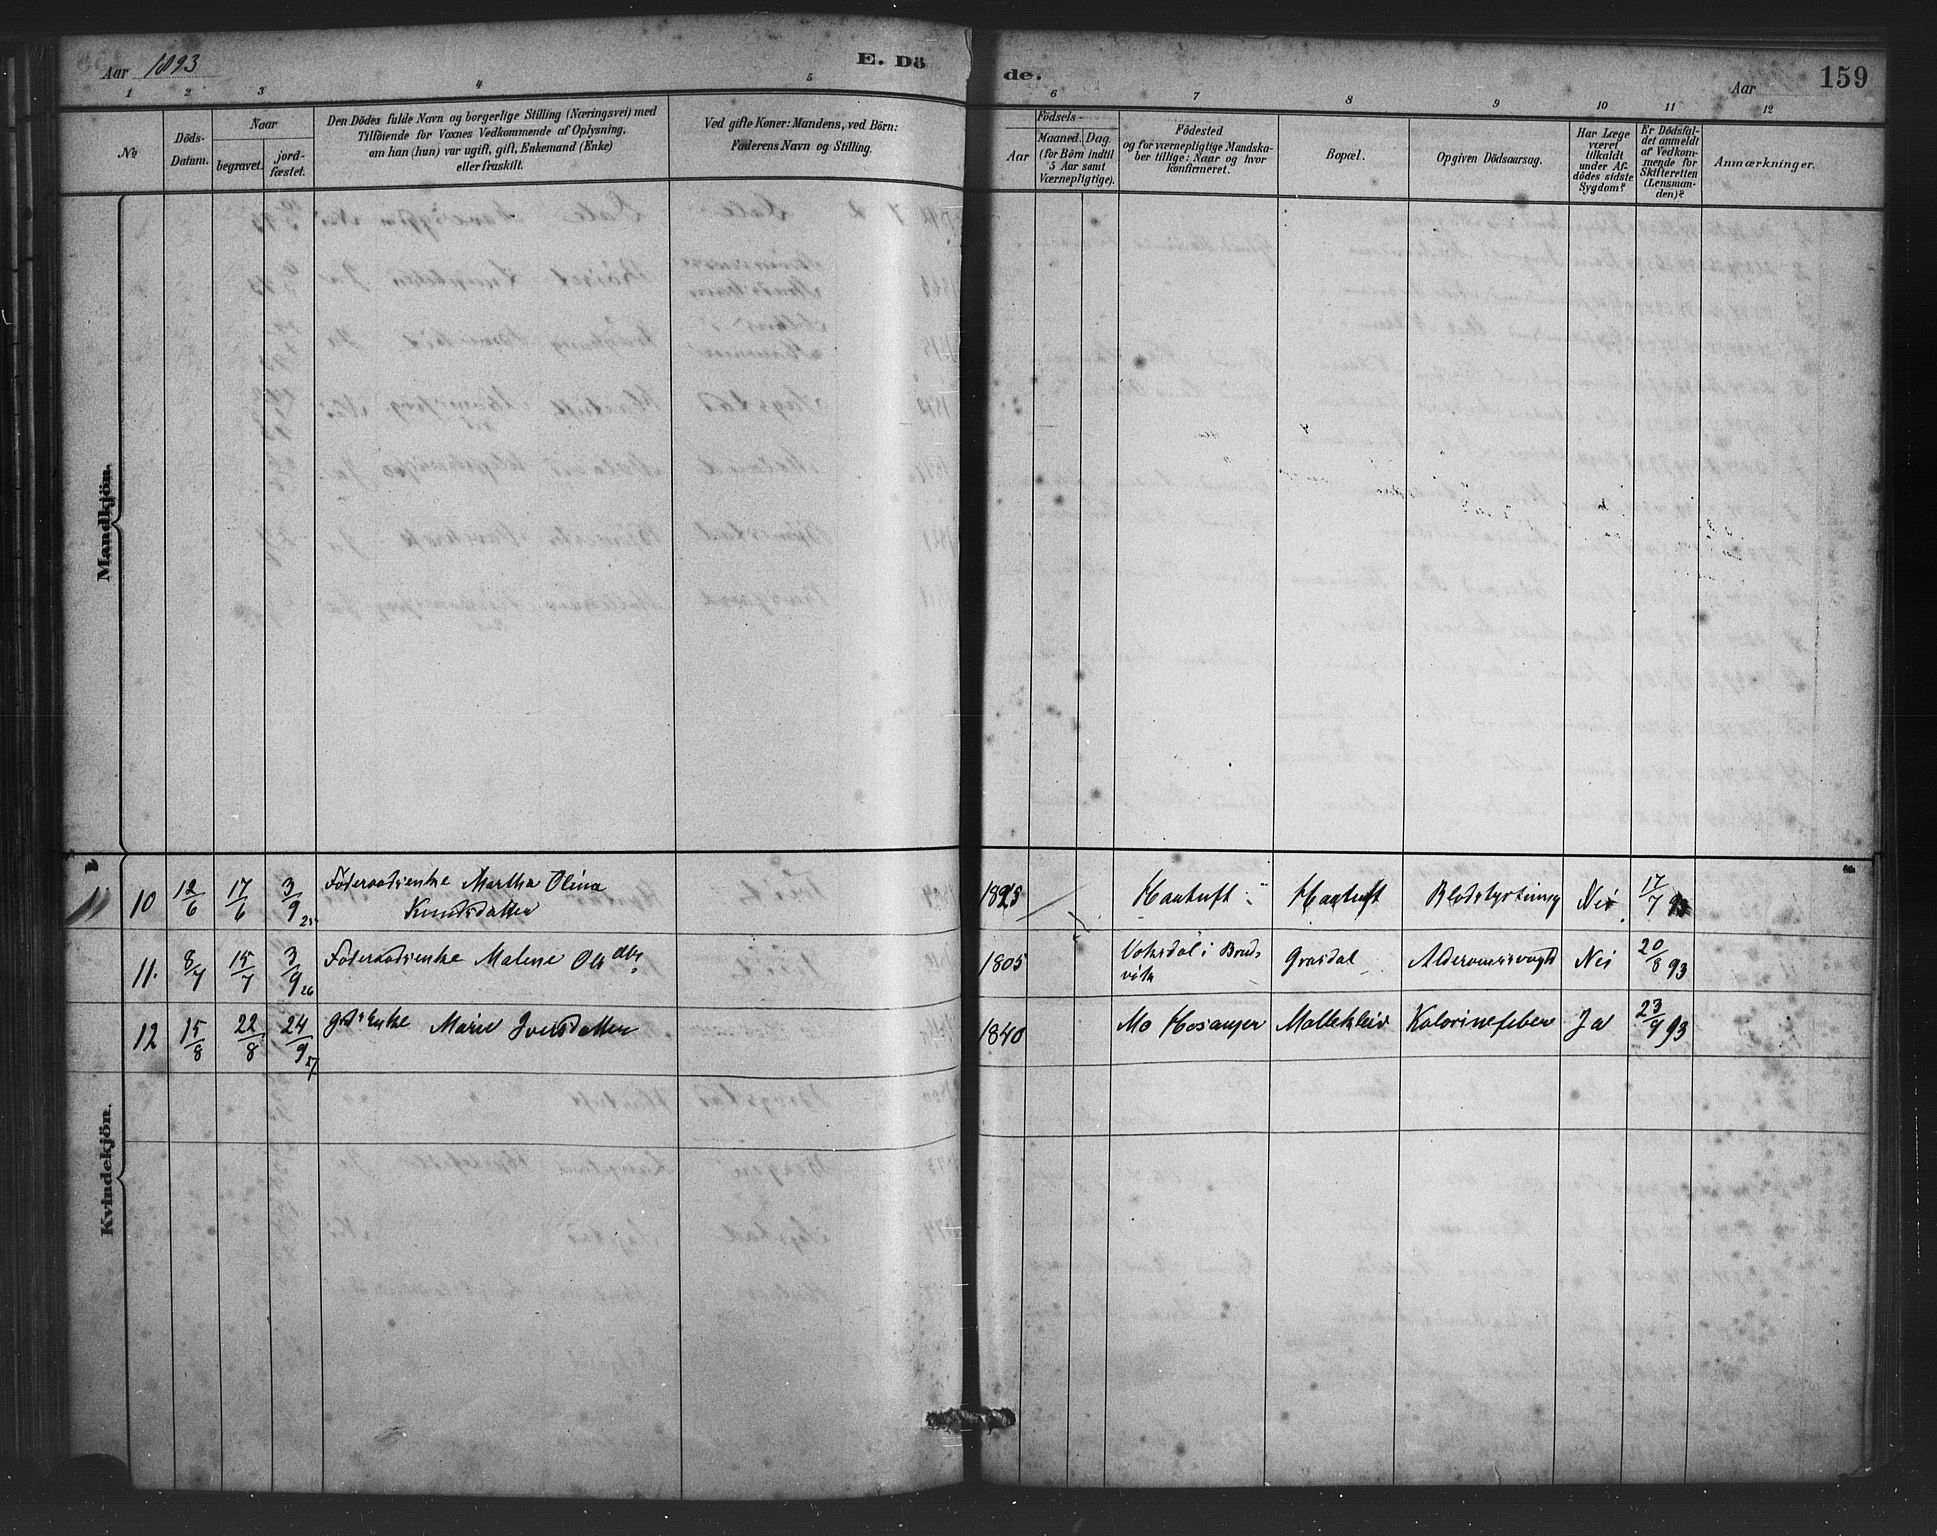 Aar 1893
E. Dö
de.
Aar
159
1 2 3 4 5 6 7 8 9 10 11 12
No
Döds-
Datum.
Naar
begravet.
jord-
fæstet.
Den Dödes fulde Navn og borgerlige Stilling (Næringsvei) med
Tilföiende for Voxnes Vedkommende af Oplysning,
om han (hun) var ugift, gift, Enkemand (Enke)
eller fraskilt.
Ved gifte Koner: Mandens, ved Börn:
Faderens Navn og Stilling.
Födsels-
Aar
Maaned.
Dag.
(for Börn indtil
5 Aar samt
Værnepligtige).
Födested
og for værnepligtige Mandska-
ber tillige: Naar og hvor
konfirmeret.
Bopæl.
Opgiven Dödsaarsag.
Har Læge
været
tilkaldt
under Af-
dödes sidste
Sygdom?
Er Dödsfal-
det anmeldt
af Vedkom-
mende for
Skifteretten
(Lensman-
den)?
Anmærkninger.
Mandkjön.
10 12/6 17/6 3/9 25 Föderaadsenke Martha Olina
Knudsdatter
Hautuft Hautuft Blodstyrtning Nei 17/7 93
11. 8/7 15/7 3/9 26 Föderaadsenke Malene Ols dtr
1805 i Brud-
vik Grasdal Nei 20/8 93
12 15/8 22/8 24/9 27 Enke Marie Iversdatter 1840 Mo Hosanger Mollekleiv Ja 23/9 93
Kvindekjön.